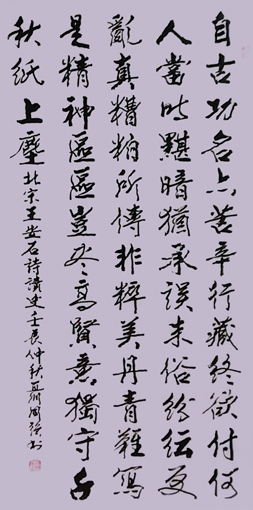 自古功名亦苦辛行藏終欲付何
人當时黮暗猶承誤末俗紛紜更
亂真糟粕所傳非粹美丹青難寫
是精神區區豈尽高賢意獨守千
秋紙上塵 北宋王安石詩讀史壬辰仲秋